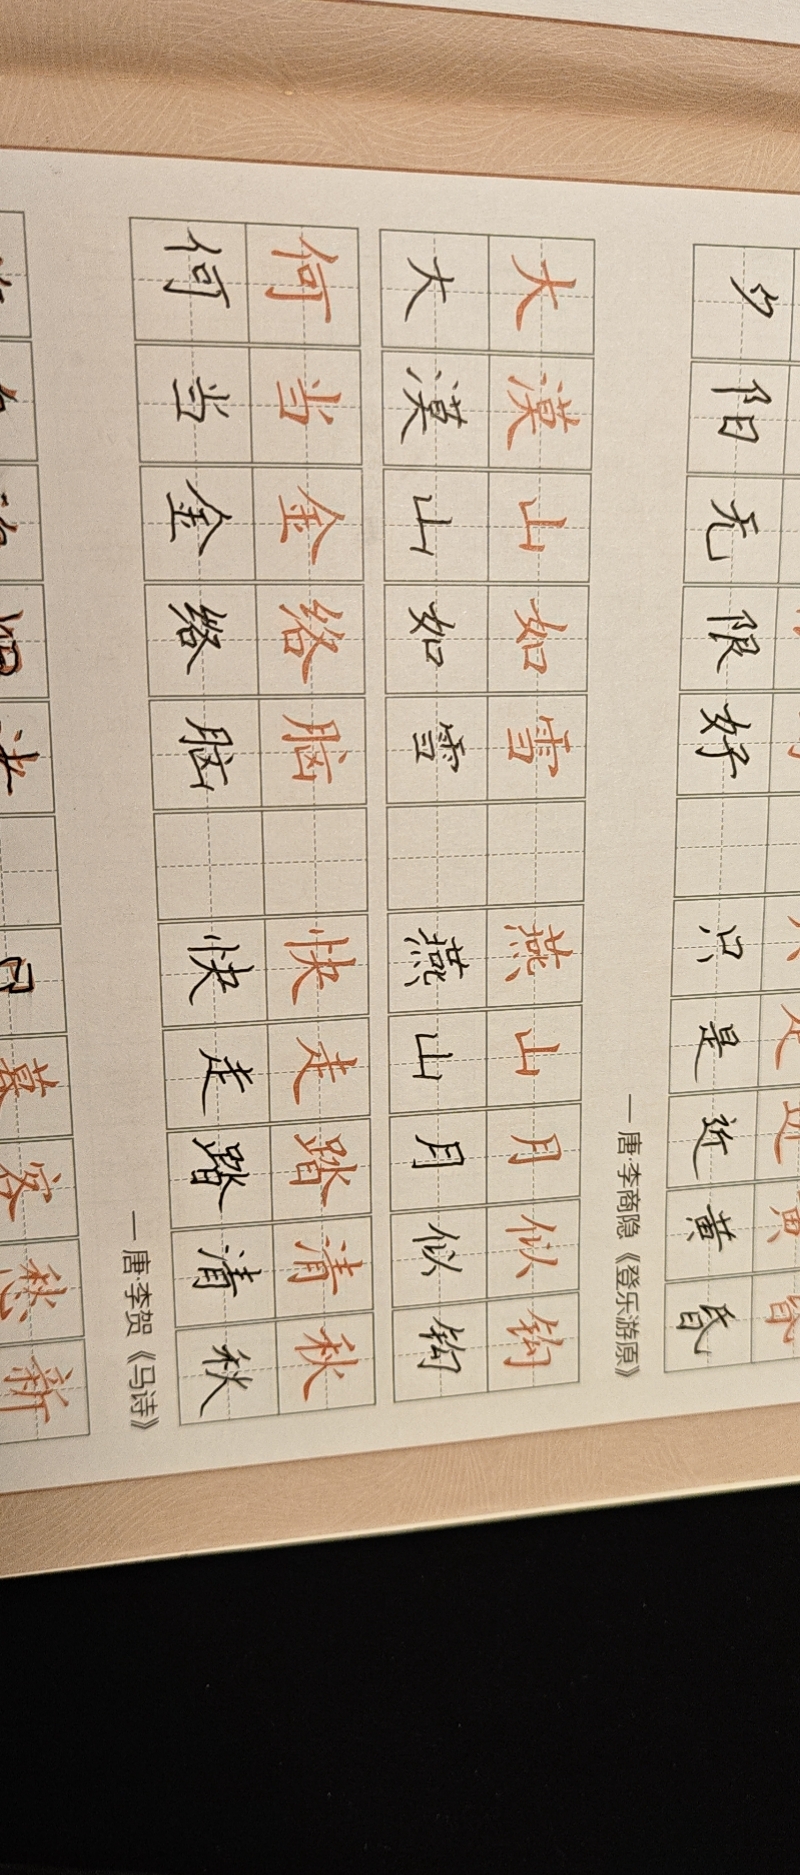 夕阳无限好 只是近黄昏
—唐·李商隐《登乐游原》
大漠山如雪 燕山月似钩
大漠山如雪 燕山月似钩
何当金络脑 快走踏清秋
何当金络脑 快走踏清秋
—唐·李贺《马诗》
日暮客愁新